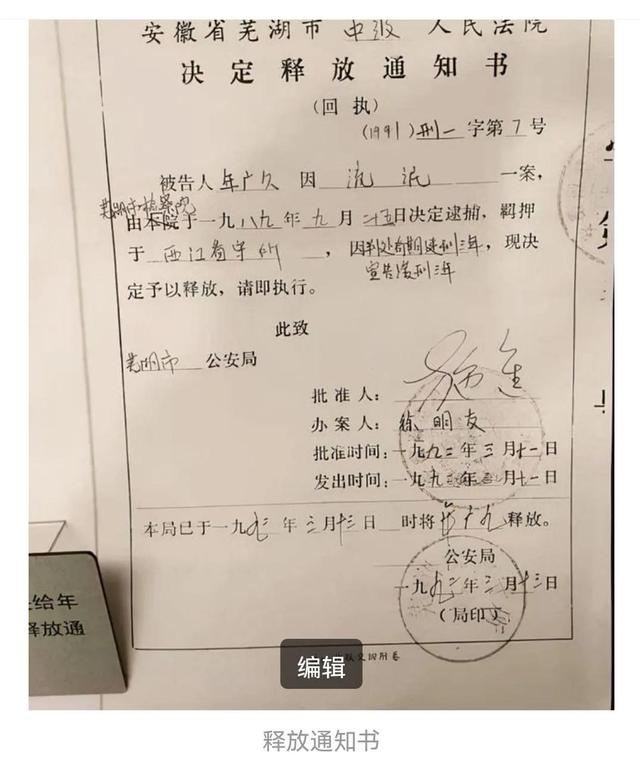 安徽省芜湖市 中级 人民法院
决定释放通知书
（回执）
（1991）刑一字第7号
被告人 年广久 因 流氓 一案，
芜湖市检察院
由本院于一九八九年九月二十五日决定逮捕，羁押
于 西江看守所 ，因判处有期徒刑三年，现决
宣告缓刑三年
定予以释放，请即执行。
此致
芜湖市 公安局
批准人：
办案人：徐明友
批准时间：一九九二年三月十一日
发出时间：一九九二年三月十一日
本局已于一九九二年三月十三日 时将年广九释放。
公安局
一九九二年三月十三日
（局印）
给年
释放通
编辑
交回附卷
释放通知书